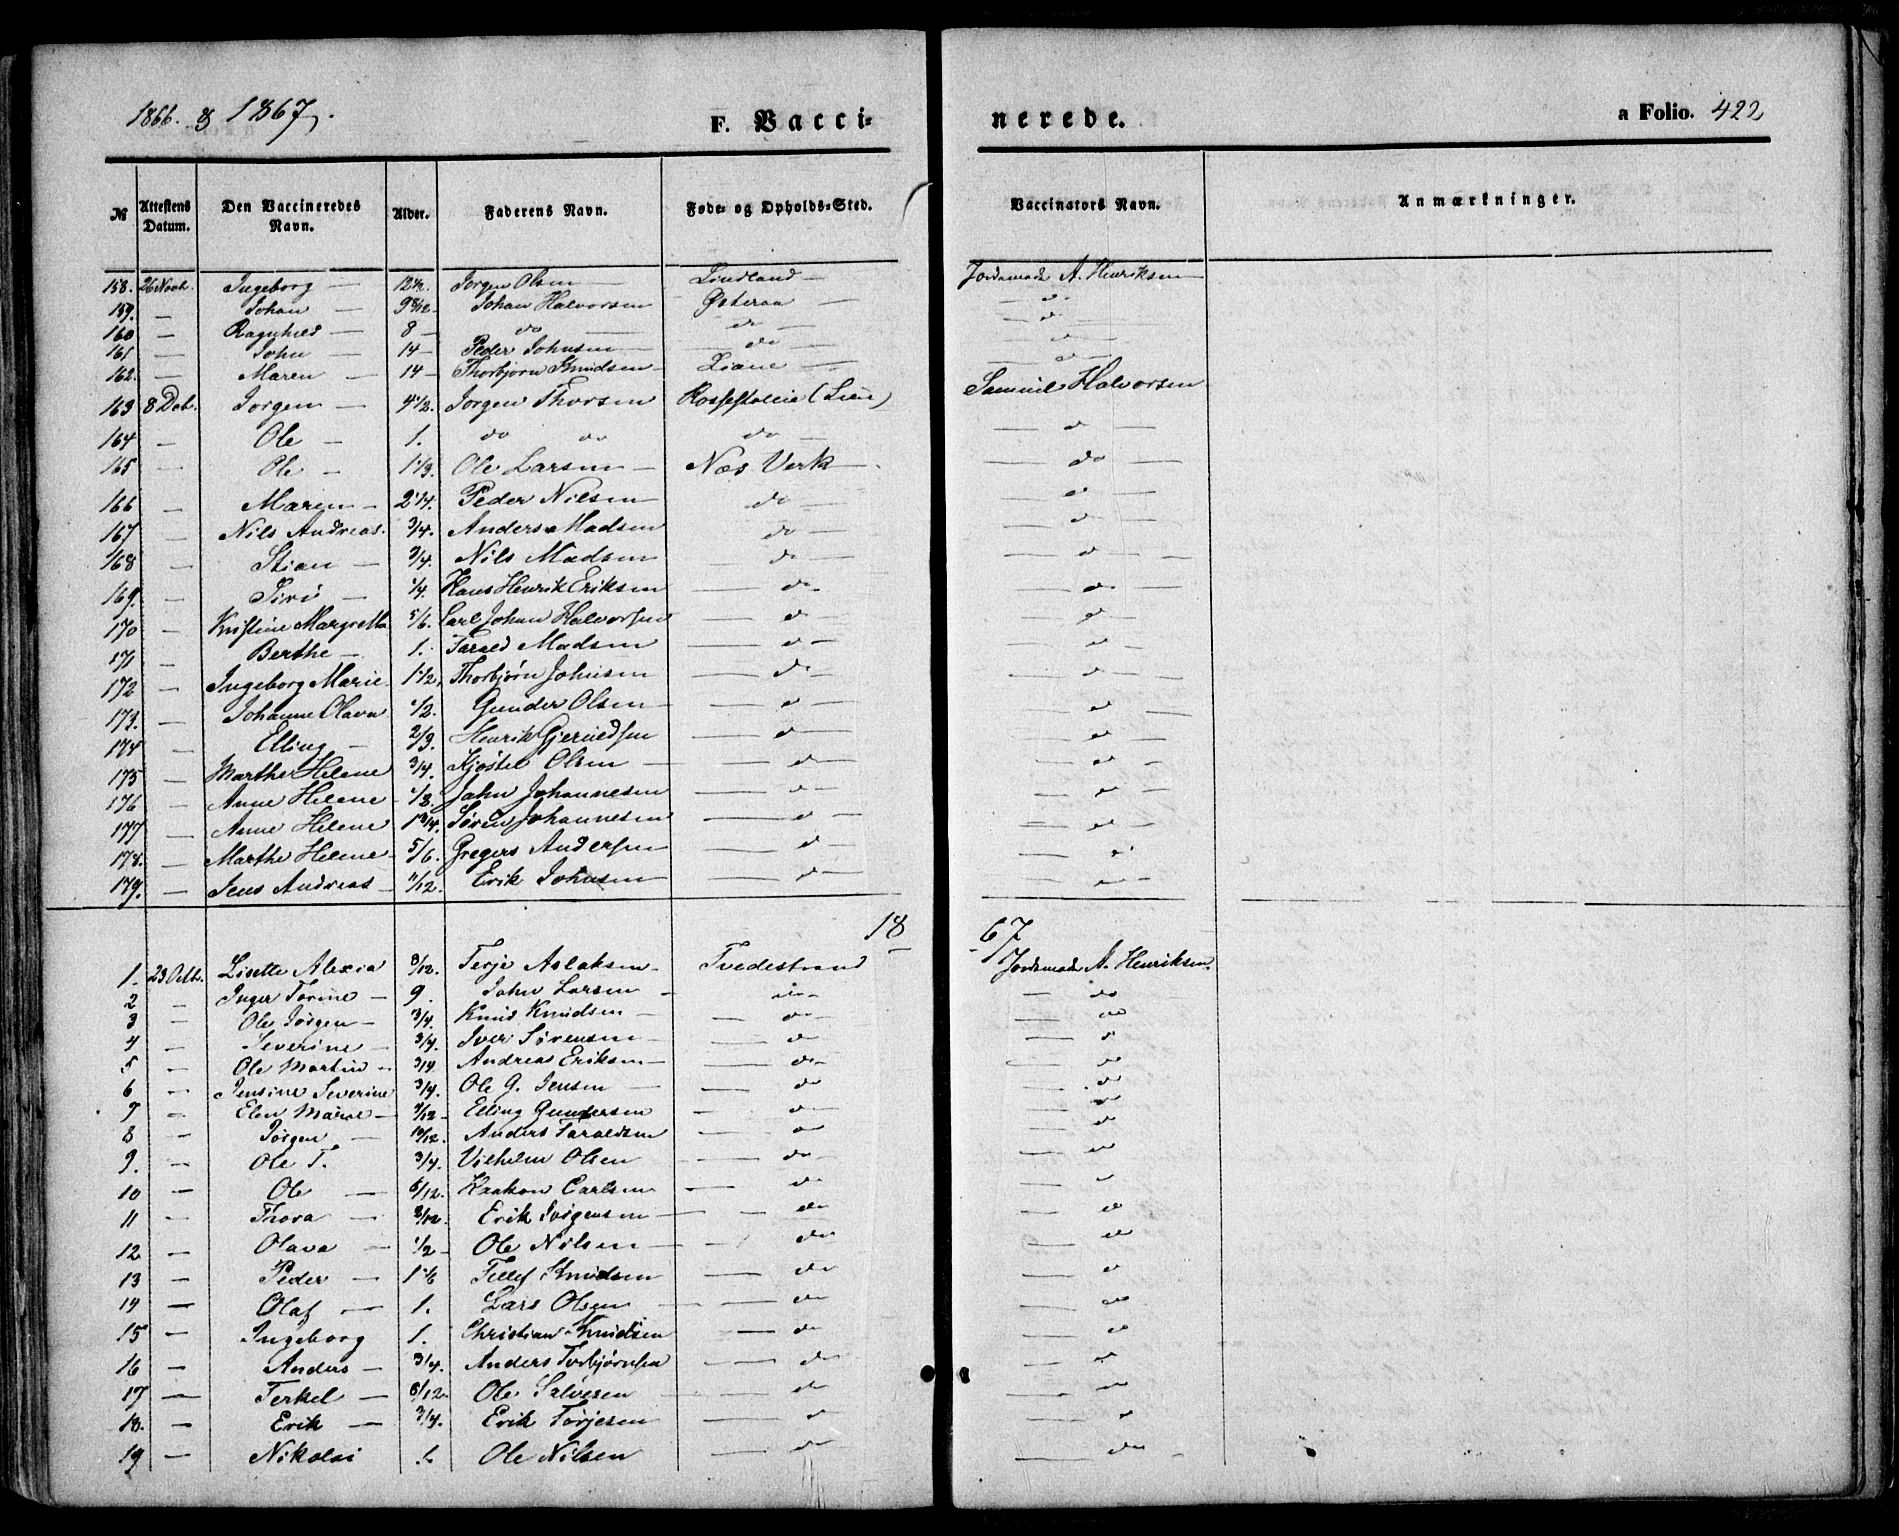 1866. & 1867.
F. Vacci-
nerede.
a Folio. 422
№ Attestens Datum. Den Vaccineredes Navn. Alder. Faderens Navn. Føde- og Opholds-Sted. Vaccinators Navn. Anmærkninger.
158. 26 Novb. Ingeborg — 12 1/2 Jørgen Olsen — Lindland — Jordemoder A. Henriksen
159. — Johan — 9 8/12 Johan Halvorsen Østeraa — do
160 — Ragnhild — 8 — do — do — do
161 — John — 14 — Peder Johnsen — do — do
162. — Maren — 14 — Thorbjørn Knudsen — Liane — do
163 8 Deb. Jørgen — 4 1/2. Jorgen Thorsen (Liene) Samuel Halvorsen
164 — Ole — 1. do do do — do
165 — Ole — 1 1/3. Ole Larsen — Næs Verk — do
166 — Maren — 2 1/4. Peder Nilsen — do — do
167 — Nils Andreas. 3/4. Anders Madsen do — do
168 — Stian — 3/4. Nils Madsen do — do
169. — Siri — 1/4. Hans Henrik Eriksen — do — do
170 — Kristine Margretha 5/6. Carl Johan Halvorsen — do — do
171 — Berthe — 1. Tarald Madsen — do — do
172 — Ingeborg Marie. 1 1/2. Thorbjørn Johnsen — do — do
173. — Johanne Olava 1/2. Gunder Olsen — do — do
174 — Elling — 2/3. Henrik Gjerulfsen — do — do
175 — Marthe Helene 3/4. Kjøstel Olsen — do — do
176 — Anne Helene — John Johannesen — do — do
177 — Anne Helene 1 3/4. Søren Johannesen — do — do
178. — Marthe Helene — 5/6. Gregers Andersen — do — do
179. — Jens Andreas — 11/12. Erik Johnsen — do — do
18 67
1. 23 Octb. Lisette Alexia 8/12. Terje Aslaksen — Tvedestrand Jordemoder A. Henriksen.
2 — Inger Torine — 9. John Larsen — do — do
3 — Ole Jørgen — 3/4. Knud Knudsen — do — do
4 — Severine — 3/4. Iver Sørensen — do — do
5 — Ole Martin — 3/4 Andreas Eriksen — do — do
6 — Jensine Severine 3/4. Ole G. Jensen — do — do
7 — Elen Marie — Elling Gundersen — do — do
8 — Jørgen — 10/12. Anders Taraldsen — do — do
9. — Ole T. 3/4. Vilhelm Olsen — do — do
10 — Ole — Haakon Carlsen — do — do
11 — Thora — Erik Jørgensen — do — do
12 — Olava — 1/2 — Ole Nilsen — do — do
13 — Peder — 1 1/6 Tellef Knudsen — do — do
14 — Olaf — 1. Lars Olsen — do — do
15 — Ingeborg 1. Christian Knudsen — do — do
16 — Anders — 3/4. Anders Torbjørnsen — do — do
17 — Terkel — 8/12. Ole Salvesen — do — do
18. — Erik — 3/4. Erik Tørjesen — do — do
19 — Nikolai Ole Nilsen — do — do